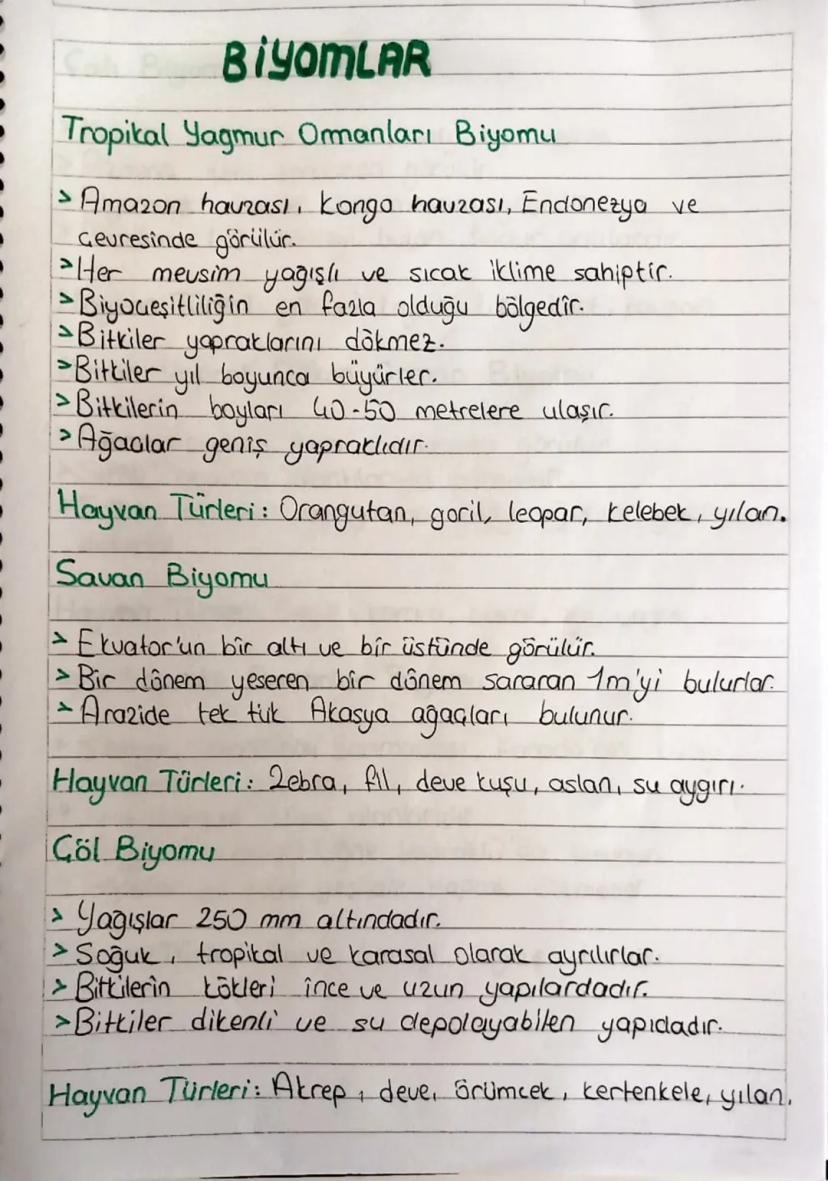 BİYOMLAR
Tropikal Yagmur Ormanları Biyomu
> Amazon havzası, Kongo havzası, Endonezya ve
çevresinde görülür.
> Her mevsim yağışlı ve sıcak iklime sahiptir.
> Biyoçeşitliliğin en fazla olduğu bölgedir.
> Bitkiler yapraklarını dökmez.
> Bitkiler yıl boyunca büyürler.
> Bitkilerin boyları 40-50 metrelere ulaşır.
> Ağaçlar geniş yapraklıdır.
Hayvan Türleri: Orangutan, goril, leopar, kelebek, yılan.
Savan Biyomu
> Ekvator'un bir altı ve bir üstünde görülür.
> Bir dönem yeseren bir dönem sararan 1m'yi bulurlar.
> Arazide tek tük Akasya ağaçları bulunur.
Hayvan Türleri: Zebra, fil, deve kuşu, aslan, su aygırı.
Çöl Biyomu
> Yağışlar 250 mm altındadır.
> Soğuk, tropikal ve karasal olarak ayrılırlar.
> Bitkilerin kökleri ince ve uzun yapılardadır.
> Bitkiler dikenli ve su depolayabilen yapıdadır.
Hayvan Türleri: Akrep, deve, örümcek, kertenkele, yılan.